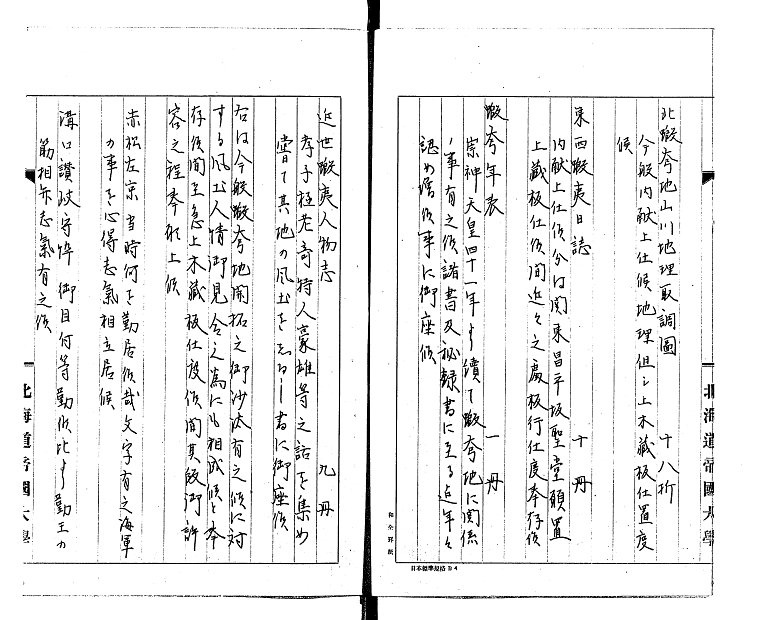 北蝦夷地山川地理取調圖　　十八折
今般内献上仕候地理但シ上木蔵板仕置度
候
東西蝦夷日誌　　　　十冊
内献上仕候分は関東昌平坂聖堂願置
上蔵板仕候間近々之處板行仕度奉存候
蝦夷年表　　　　一冊
崇神天皇四十一年より續て蝦夷地に関係
ノ事有之候諸書及祕録書に至る迠年々
認め譜候事に御座候
近世蝦夷人物志　　　　九冊
孝子極老奇特人豪雄等之話を集め
嘗て其地の風土をしるし書に御座候
右は今般蝦夷地開拓之御沙汰有之候に対
する風土人情御見合之為にも相成候と奉
存候間至急上木蔵板仕度候間其段御許
容之程奉願上候
赤松左京当時何を勤居候哉文字有之海軍
の事を心得志氣相立居候
溝口讃岐守悴御目何等勤候比より勤王の
筋相弁志氣有之候
北海道帝國大學
北海道帝國大學
日本標準規格B4